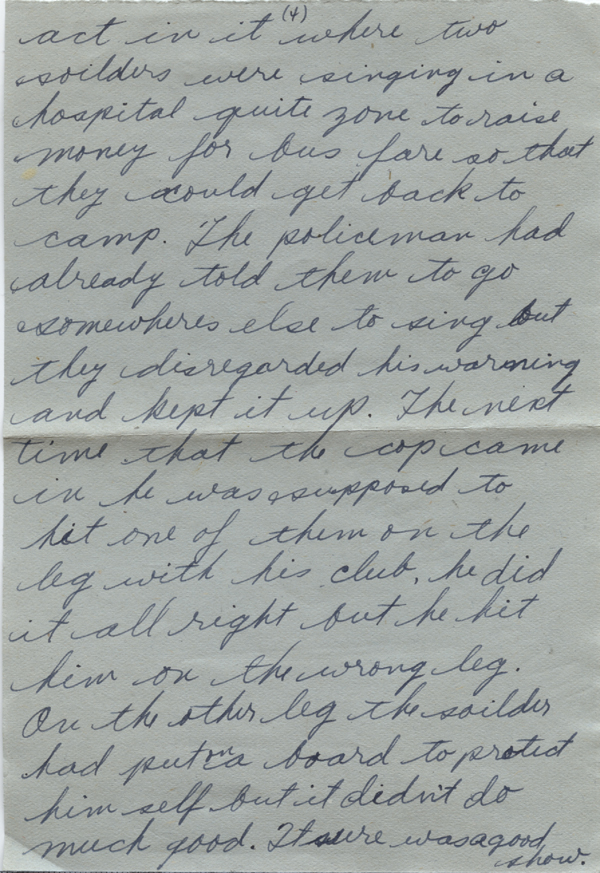 (4)
act in it where two
soilders were singing in a
hospital quite zone to raise
money for bus fare so that
they could get back to
camp. The policeman had
already told them to go
somewheres else to sing but
they disregarded his warning
and kept it up. The next
time that the cop came
in he was supposed to
hit one of them on the
leg with his club, he did
it all right but he hit
him on the wrong leg.
On the other leg the soilder
had put on a board to protect
him self but it didn't do
much good. It sure was a good
show.